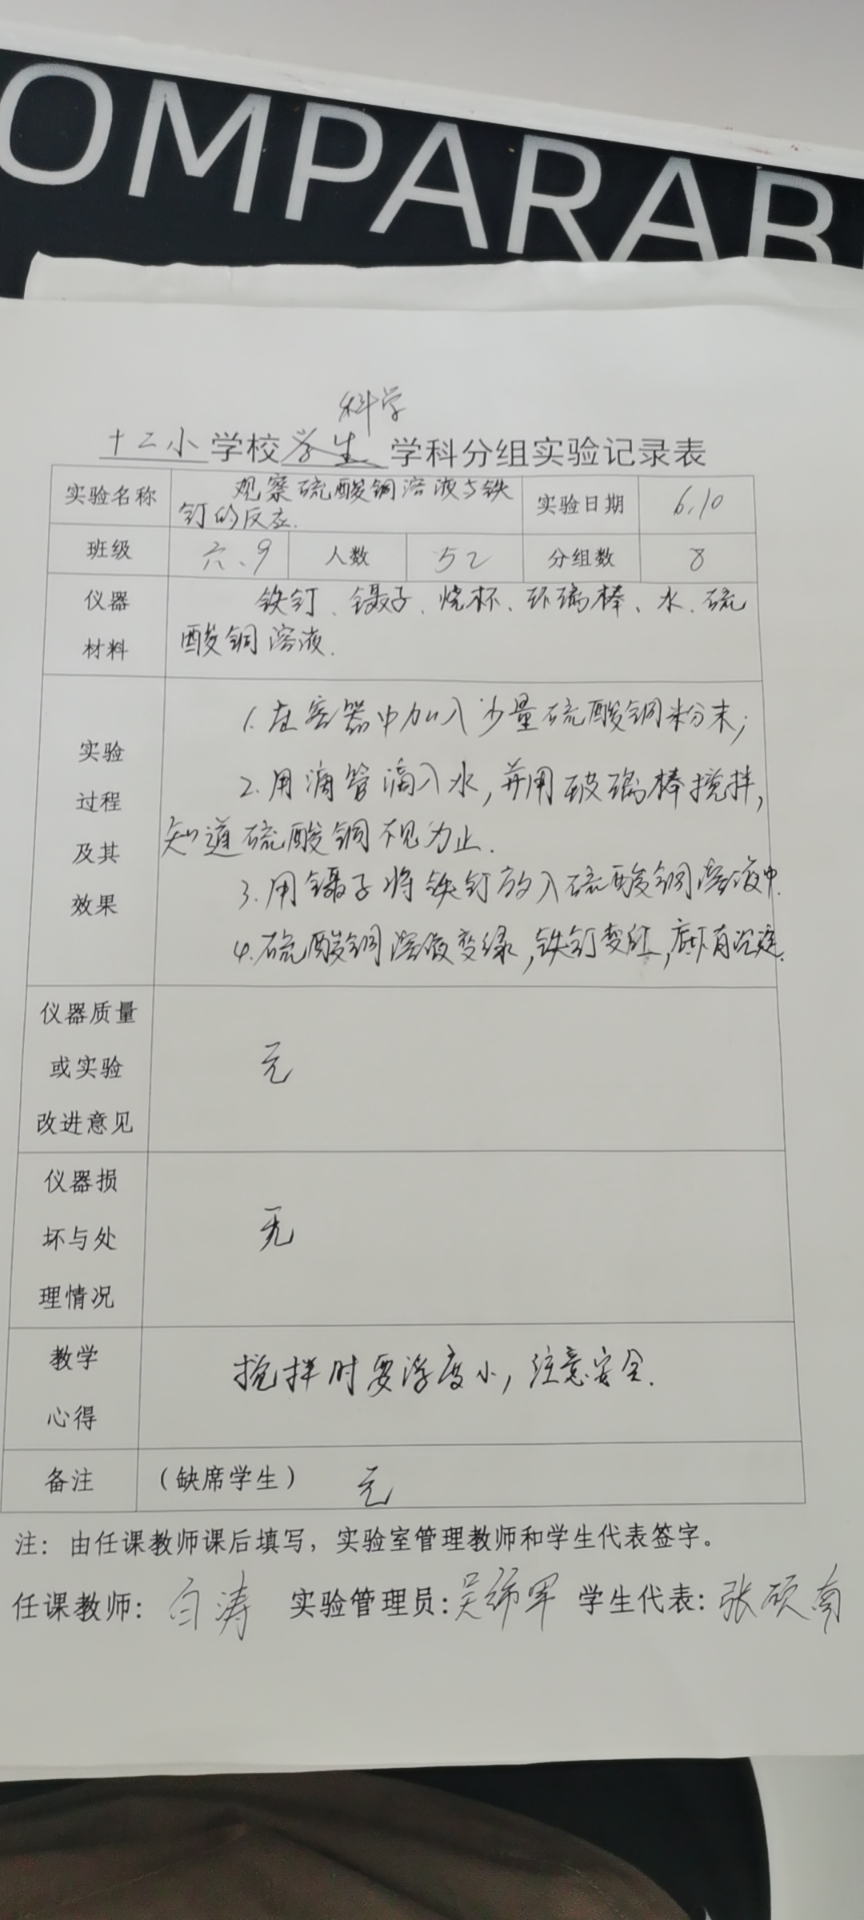 OMPARAB
科学
十二小学校学生学科分组实验记录表
实验名称 观察硫酸铜溶液与铁钉的反应. 实验日期 6.10
班级 六.9 人数 52 分组数 8
仪器材料 铁钉、镊子、烧杯、玻璃棒、水、硫
酸铜溶液.
实验过程及其效果 1.在容器中加入少量硫酸铜粉末;
2.用滴管滴入水,并用玻璃棒搅拌,
知道硫酸铜不见为止.
3.用镊子将铁钉放入硫酸铜溶液中.
4.硫酸铜溶液变绿,铁钉变红,底下有沉淀.
仪器质量或实验改进意见 无
仪器损坏与处理情况 无
教学心得 搅拌时要浮度小,注意安全.
备注 (缺席学生) 无
注:由任课教师课后填写,实验室管理教师和学生代表签字。
任课教师:白涛 实验管理员:吴 军 学生代表:张硕南